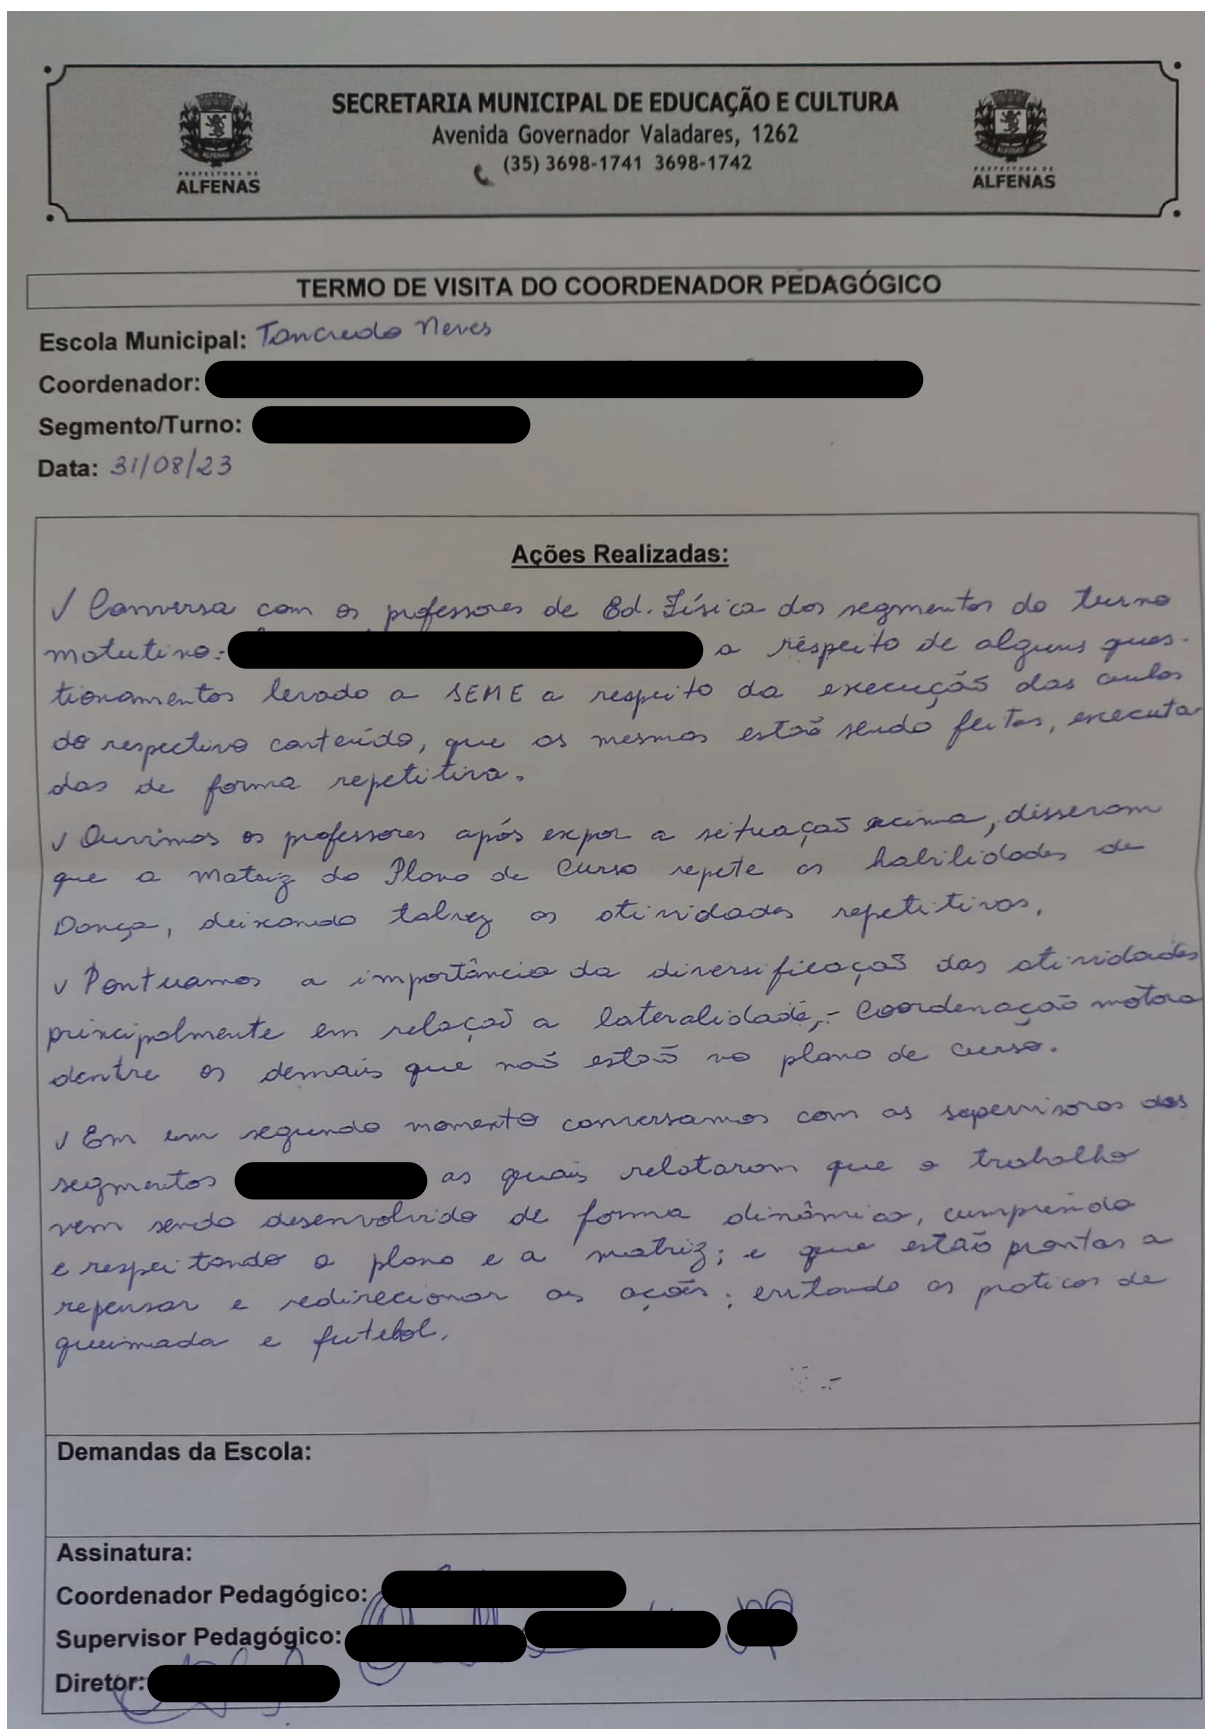 SECRETARIA MUNICIPAL DE EDUCAÇÃO E CULTURA
Avenida Governador Valadares, 1262
(35) 3698-1741 3698-1742
PREFEITURA DE
ALFENAS
PREFEITURA DE
ALFENAS
TERMO DE VISITA DO COORDENADOR PEDAGÓGICO
Escola Municipal: Tancredo Neves
Coordenador:
Segmento/Turno:
Data: 31/08/23
Ações Realizadas:
✓ Conversa com os professores de Ed. Física dos segmentos do turno
matutino: a respeito de alguns ques-
tionamentos levado a SEME a respeito da execução das aulas
do respectivo conteúdo, que os mesmos estão sendo feitos, executa
das de forma repetitiva.
✓ Ouvimos os professores após expor a situação acima, disseram
que a Matriz do Plano de Curso repete as habilidades de
Dança, deixando talvez as atividades repetitivas.
✓ Pontuamos a importância da diversificação das atividades
principalmente em relação a lateralidade, - Coordenação motora
dentre os demais que não estão no plano de curso.
✓ Em um segundo momento conversamos com as supervisoras dos
segmentos as quais relataram que o trabalho
vem sendo desenvolvido de forma dinâmica, cumprindo
e respeitando o plano e a matriz; e que estão prontas a
repensar e redirecionar as ações; evitando as praticas de
queimada e futebol.
Demandas da Escola:
Assinatura:
Coordenador Pedagógico:
Supervisor Pedagógico:
Diretor: